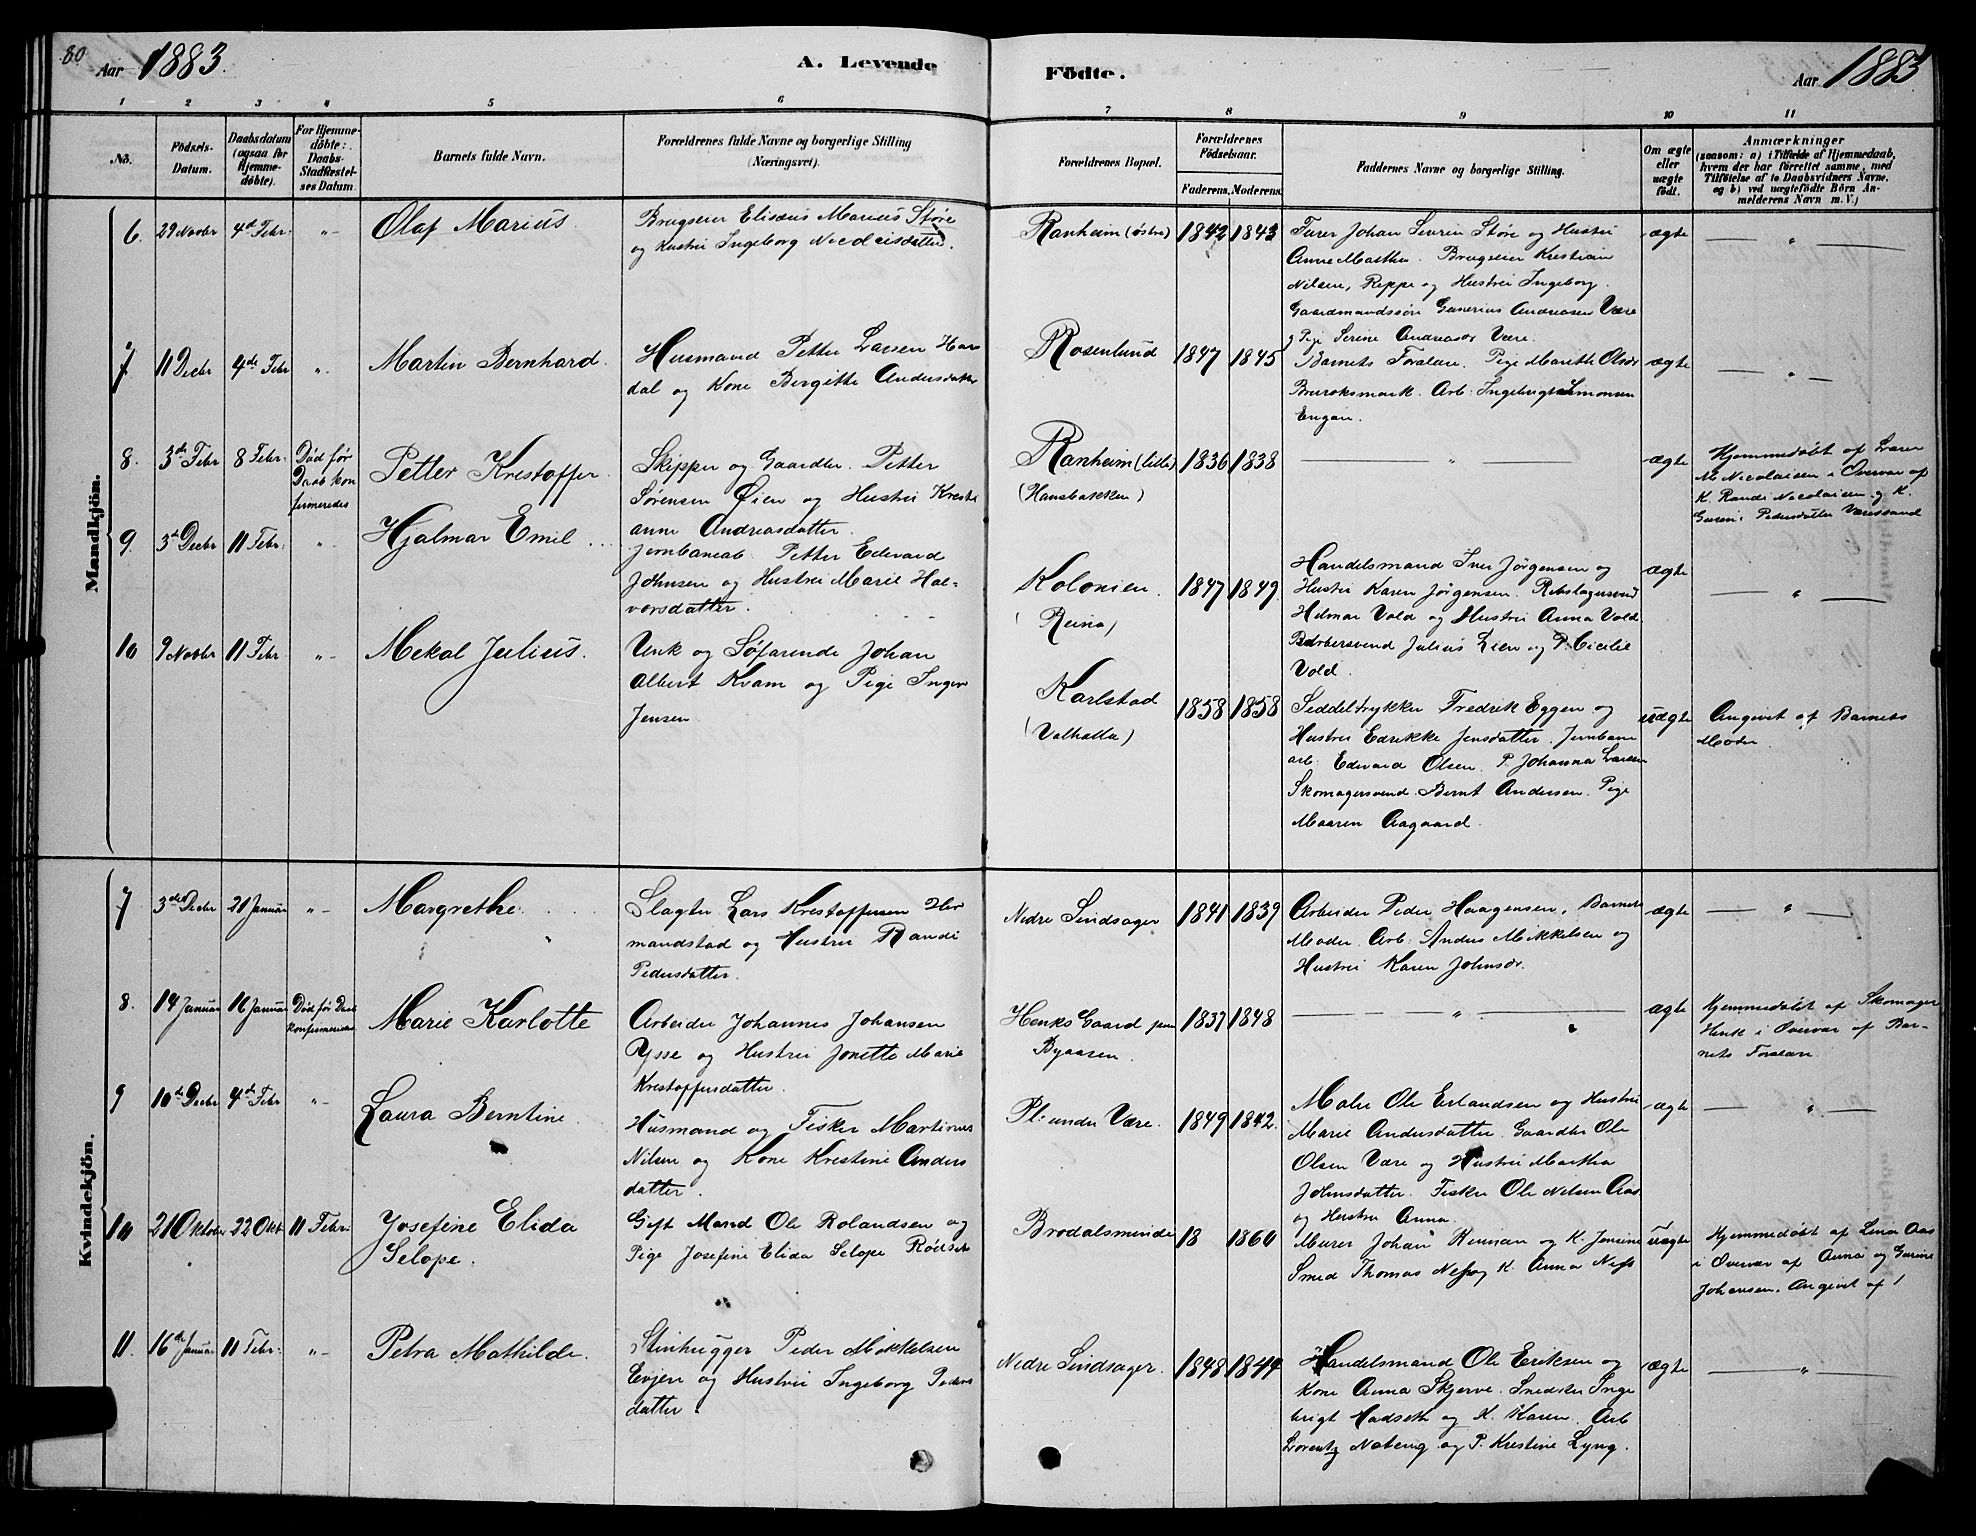 80
Aar 1883.
A. Levende
Födte.
Aar 1883
1 2 3 4 5 6 7 8 9 10 11
No.
Födsels-
Datum.
Daabsdatum
(ogsaa for
Hjemme-
döbte).
For Hjemme-
döbte:
Daabs-
Stadfæstel-
ses Datum.
Barnets fulde Navn.
Forældrenes fulde Navne og borgerlige Stilling
(Næringsvei).
Forældrenes Bopæl.
Forældrenes
Födselsaar.
Faderens. Moderens.
Faddernes Navne og borgerlige Stilling.
Om ægte
eller
uægte
födt.
Anmærkninger
(saasom: a) i Tilfælde af Hjemmedaab,
hvem der har forrettet samme, med
Tilföielse af to Daabsvidners Navne.
og b) ved uægtefödte Börn An-
melderens Navn m. V.)
Mandkjön.
6. 29 Novbr 4de Febr. „-
Olaf Marius.
Brugseier Elisæus Marius Støre
og Hustru Ingeborg Nicolaisdatter.
Ranheim (østre)
1842 1843
Furer Johan Sevrin Støre og Hustru
Anne Martha. Brugseier Kristian
Nilsen, Reppe og Hustru Ingeborg.
Gaardmandssøn Gunerius Andreasen Være
og Pige Serine Andreasdr Være.
ægte
— „ —
7 11 Decbr 4de Febr „-
Martin Bernhard.
Husmand Petter Larsen Haa
dal og Kone Birgitte Andersdatter
Rosenlund
1847 1845
Barnets Forældre. Pige Marith Olsdr
Bruroksmark. Arb: Ingebrigt Simonsen
Engan.
ægte
— „ —
8. 3de Febr 8 Febr. Død før
Daab kon
firmeredes
Petter Krestoffer.
Skipper og Gaardbr. Petter
Sørensen Øien og Hustru Kresti
anne Andreasdatter.
Ranheim (lille)
(Hansbakken)
1836 1838
— „ —
ægte
Hjemmedøbt af Lærer
M Nicolaisen i Overvær af
K. Randi Nicolaisen og K.
Guru Pedersdatter Væresand
9. 3de Decbr 11 Febr. „-
Hjalmar Emil
Jernbanearb. Petter Edevard
Johnsen og Hustru Marie Hal-
vorsdatter.
Kolonien.
(Reina)
1847 1849
Handelsmand Iver Jørgensen og
Hustru Karen Jørgensen. Rebslagersvend
Hilmar Vold og Hustru Anna Vold
Barbersvend Julius Lien og P. Cicilie
Vold.
ægte
— „ —
10 9 Novbr 11 Febr „-
Mekal Julius.
Unk og Søfarende Johan
Albert Kvam og Pige Inger
Jensen
Karlstad
(Valhalla)
1858 1858
Seddeltrykker Fredrik Eggen og
Hustru Edrikke Jensdatter. Jernbane
arb: Edevard Olsen. P. Johanna Larsen
Skomagersvend Bernt Andersen. Pige
Maaren Aagaard.
uægte
Angivet af Barnets
Moder.
Kvindekjön.
7 3die Decbr 21 Januar „-
Margrethe
Slagter Lars Krestoffersen Her
mandstad og Hustru Randi
Pedersdatter.
Nedre Sindsager
1841 1839
Arbeider Peder Haagensen, Barnets
Moder. Arb: Anders Mikkelsen og
Hustru Karen Johnsdr.
ægte
— „ —
8. 14 Januar 16 Januar Død før Daab
konfirmeredes
Marie Karlotte
Arbeider Johannes Johansen
Rysse og Hustru Jonette Marie
Krestoffersdatter.
Henks Gaard paa
Byaasen.
1837 1848
— „ —
ægte
Hjemmedøbt af Skomager
Henk i Overvær af Bar-
nets Forældre.
9 10de Decbr 4de Febr „-
Laura Berntine.
Husmand og Fisker Martinus
Nilsen og Kone Krestine Anders
datter.
Pl: under Være.
1849 1842.
Maler Ole Erlandsen og Hustru
Marie Andersdatter. Gaardbr Ole
Olsen Være og Hustru Martha
Johnsdatter. Fisker Ole Nilsen Aas
og Hustru Anna.
ægte
— „ —
10 21 Oktober 22 Okt. 11 Febr.
Josefine Elida
Selope.
Gift Mand Ole Rolandsen og
Pige Josefine Elida Selope
Brodalsminde
18 1860
Murer Johan Rennan og K. Jensine
Smed Thomas Næss og K. Anna Næss
uægte
Hjemmedøbt af Lina Aas
i Overvær af Anna og Gurine
Johansen. Angivet af 1
11. 16de Januar 11 Febr. „-
Petra Mathilde.
Stenhugger Peder Mikkelsen
Evjen og Hustru Ingeborg Peders
datter.
Nedre Sindsager.
1848 1844
Handelsmand Ole Eriksen og
Kone Anna Skjerve. Smedsv Inge
brigt Hadseth og K. Karen. Arb
Lorentz Noberg og P. Krestine Lyng.
ægte
— „ —